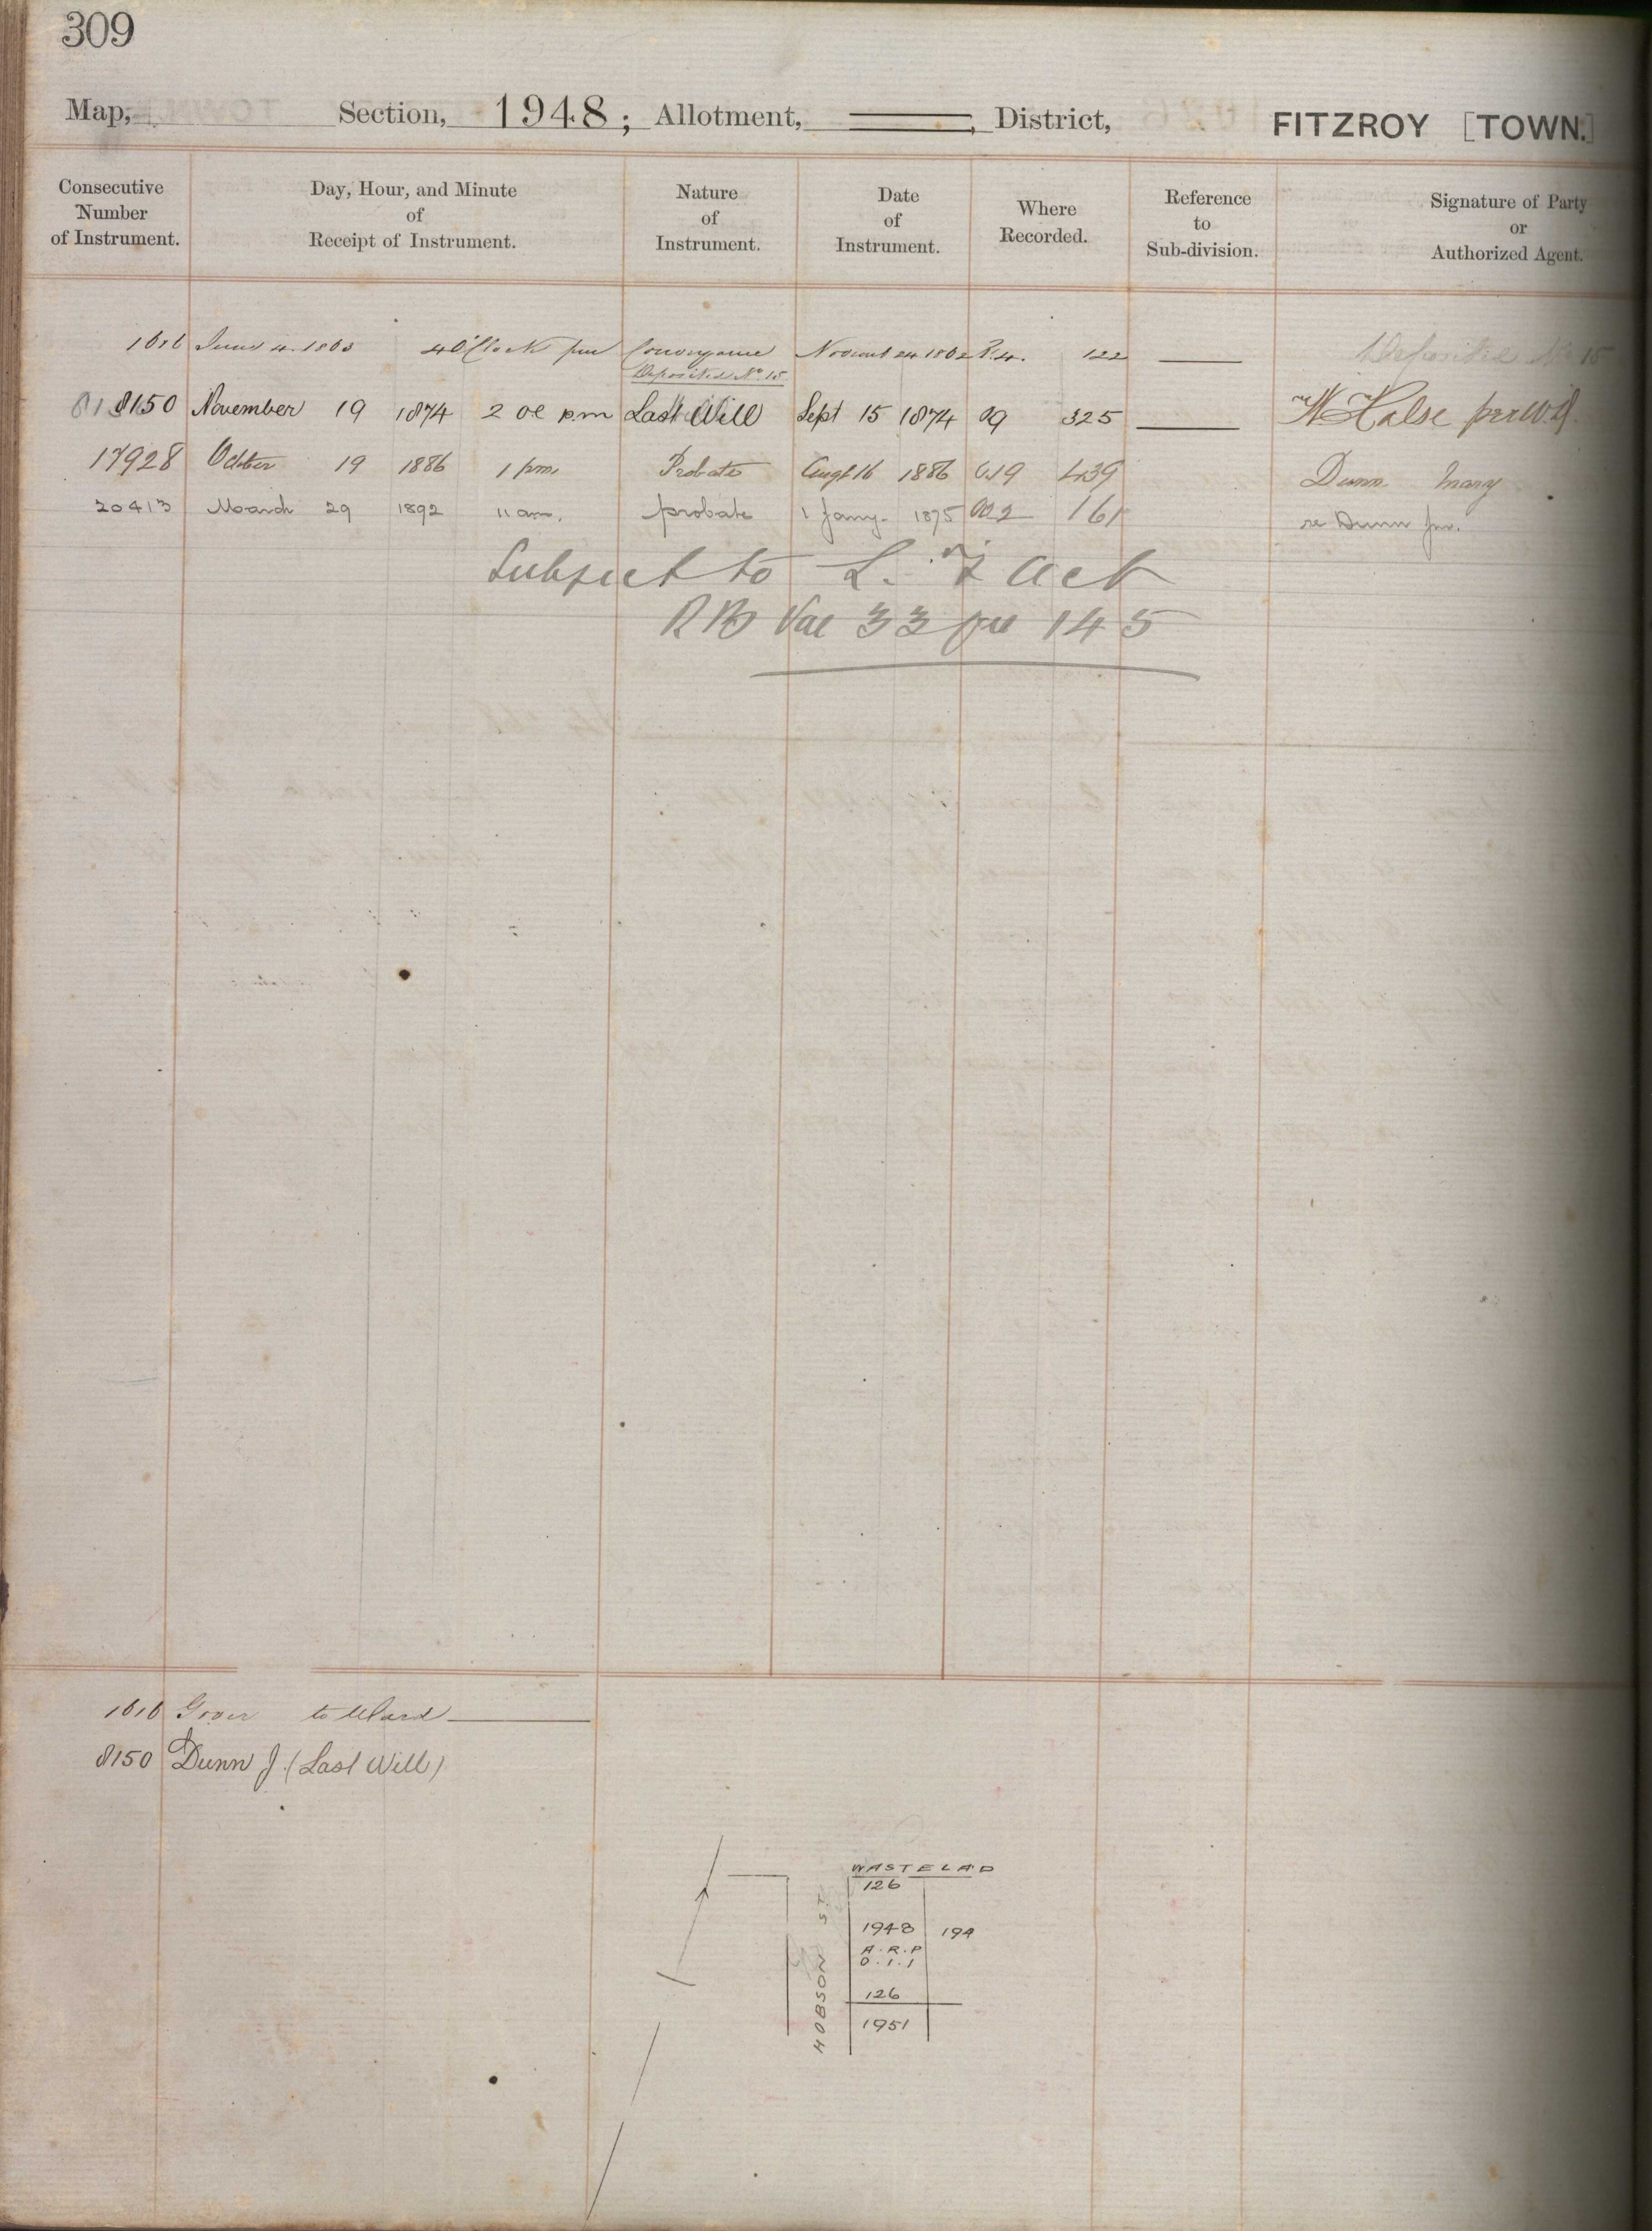 309
Map, Section, 1948; Allotment, District, FITZROY [TOWN.]
Consecutive Number of Instrument.
Day, Hour, and Minute of Receipt of Instrument.
Nature of Instrument.
Date of Instrument.
Where Recorded.
Reference to Sub-division.
Signature of Party or Authorized Agent.
1616 June 4. 1863 4 O'Clock pm Conveyance 24 1862 R.4. 122 Deposited No 15
Deposited No. 15
8150 November 19 1874 2 oc p.m Last Will Sept 15 1874 D9 325 W Halse per
17928 October 19 1886 1 pm. Probate Augt 16 1886 439 Dunn Mary
20413 March 29 1892 11 am. probate 1 Jany. 1875 161 re Dunn Jno.
Subject to L. T Act
RB Vol 33 fol 145
1616 Gover to Ward
8150 Dunn J. (Last Will)
WASTE LAD
126
HOBSON ST
1948 194
A. R. P
0. 1. 1
126
1951